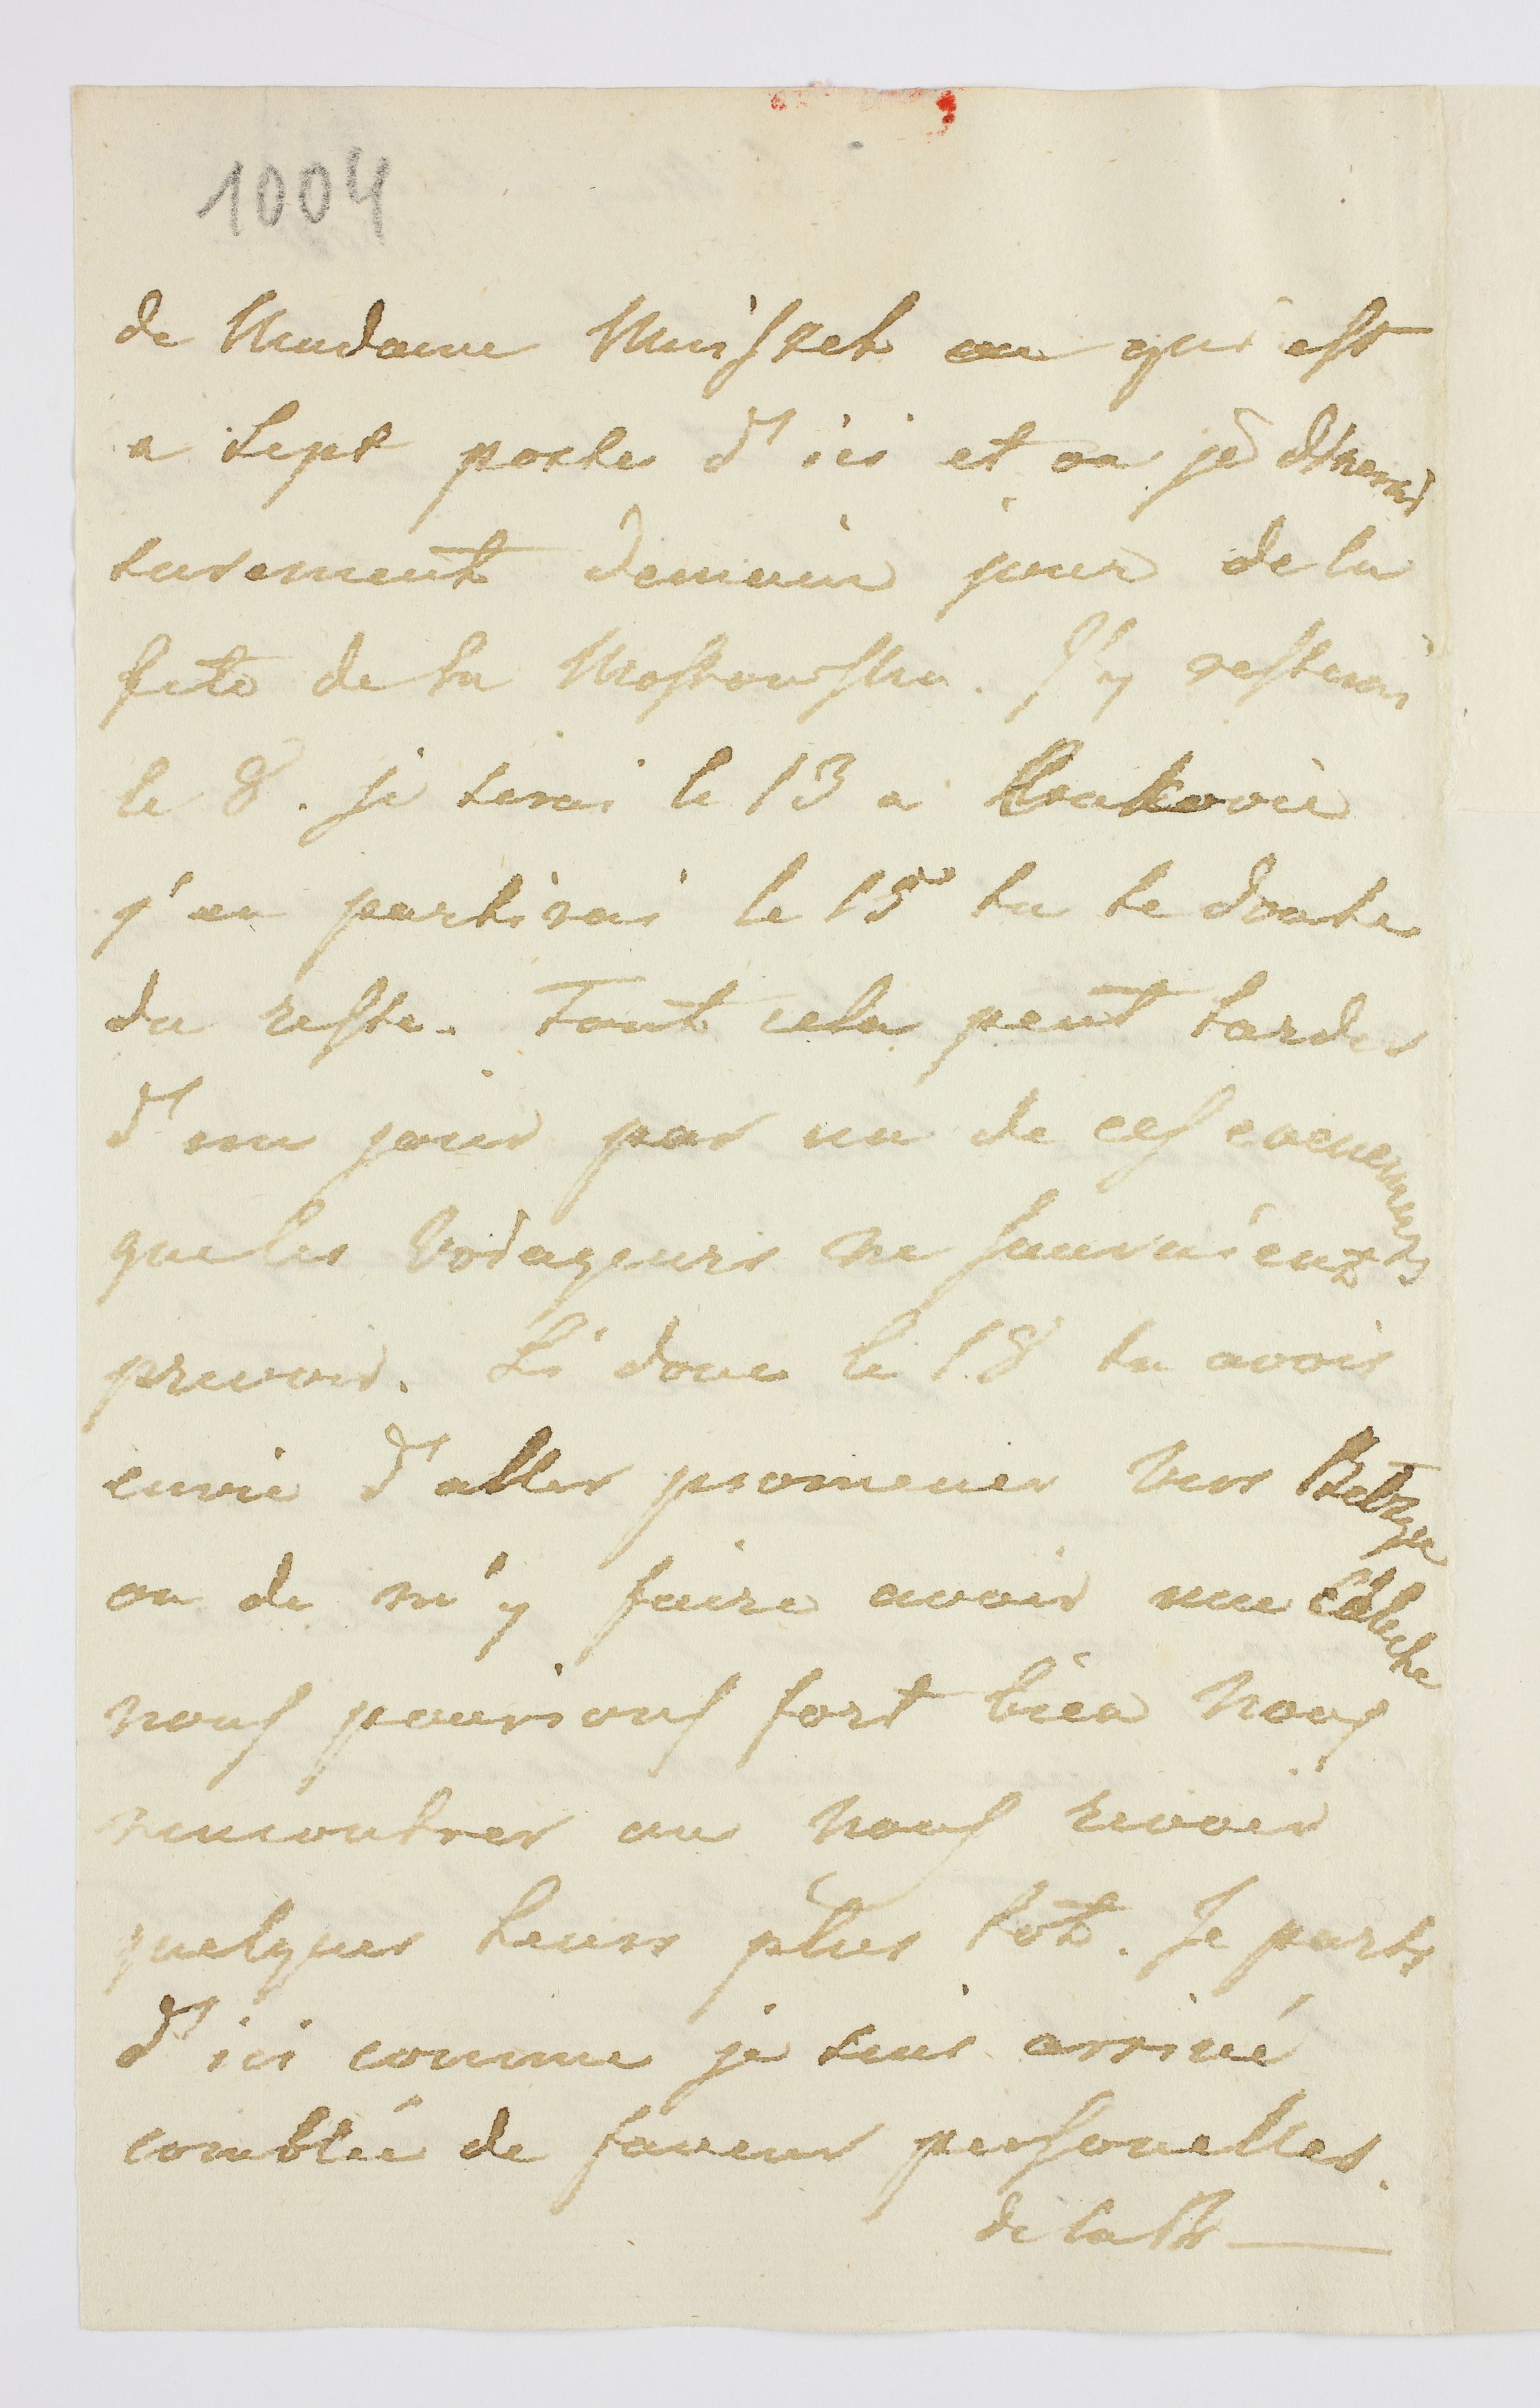 1004
de Madame Mnifzeh ou qui est
a sept postes d'ici et ou je dinerai
surement demain jour de la
fete de la Moskowska. J'y resterai
le 8. je serai le 13 a Krakovie
j'en partirai le 15 tu te doute
du reste. Tout cela peut tarder
d'un jour par un de ces evenements
que les Vodageurs ne sauraient
prevoir. Si donc le 18 tu avois
envie d'aller promener vers
ou de m'y faire avoir une Caleche
nous pourions fort bien nous
rencontrer ou nous revoir
quelques heurs plus tot. Je parts
d'ici comme je suis arrivé
comblée de faveur personelles.
de la Pr